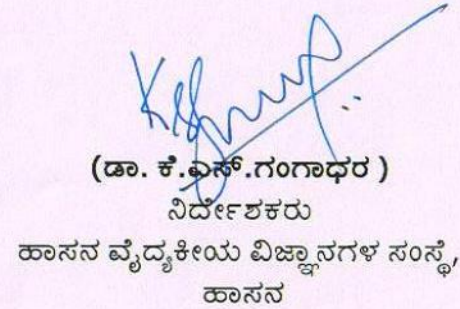 (ಡಾ. ಕೆ.ಎಸ್.ಗಂಗಾಧರ )
ನಿರ್ದೇಶಕರು
ಹಾಸನ ವೈದ್ಯಕೀಯ ವಿಜ್ಞಾನಗಳ ಸಂಸ್ಥೆ,
ಹಾಸನ